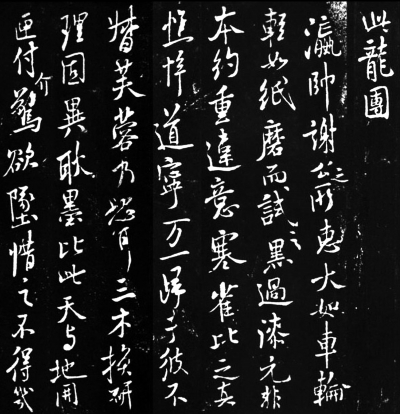 此龍團
瀛帥謝公之所惠大如車輪
輕如紙磨而試之黑過漆元非
本約重違意寒雀比之真
憔悴道寧万一歸于彼不
芙蓉乃耳三木研
理固異耿墨比此天与地開
匣付介驚欲墜惜之不得幾